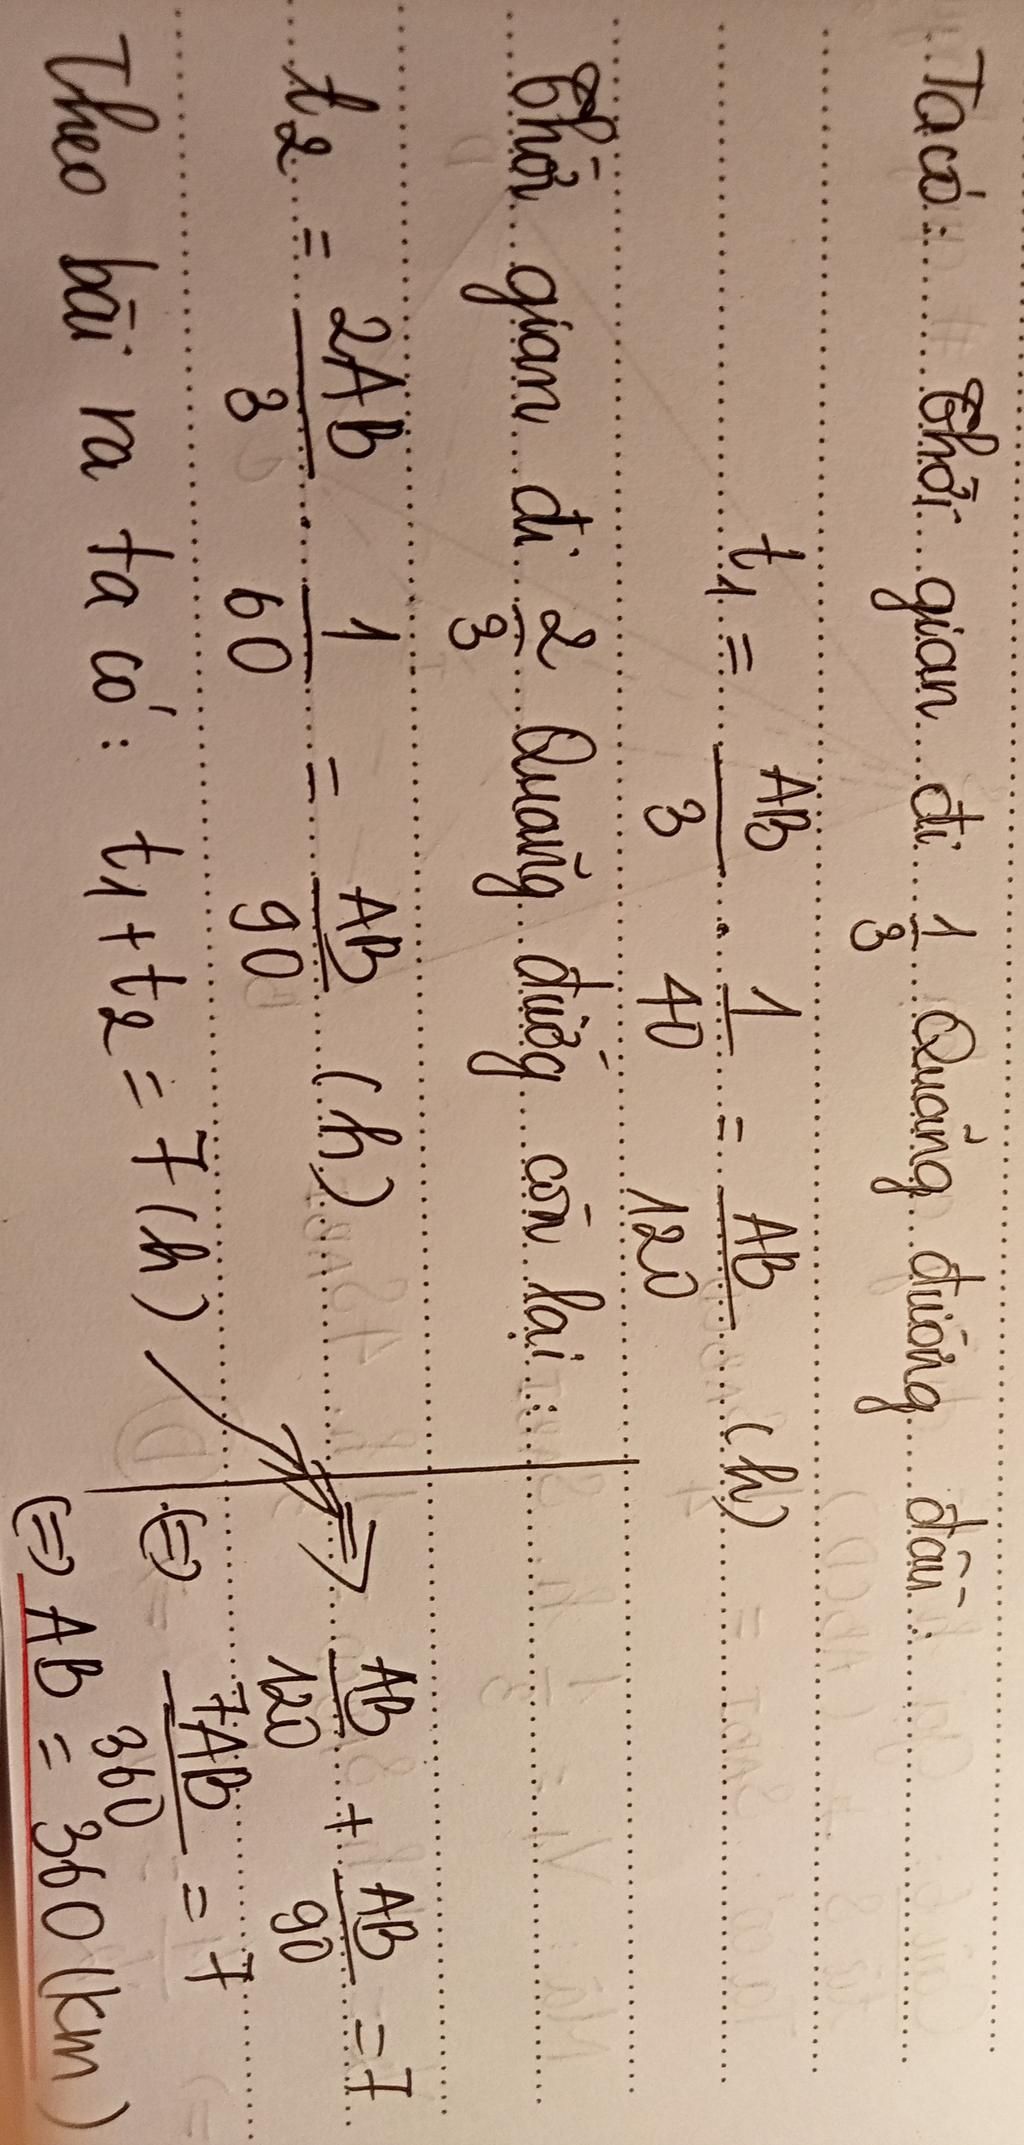 Ta có: Thời gian đi 1/3 Quãng đường đầu:
t1 = AB/3 . 1/40 = AB/120 (h)
Thời gian đi 2/3 Quãng đường còn lại:
t2 = 2AB/3 . 1/60 = AB/90 (h)
Theo bài ra ta có: t1 + t2 = 7 (h)
=> AB/120 + AB/90 = 7
(=) 7AB/360 = 7
(=) AB = 360 (km)